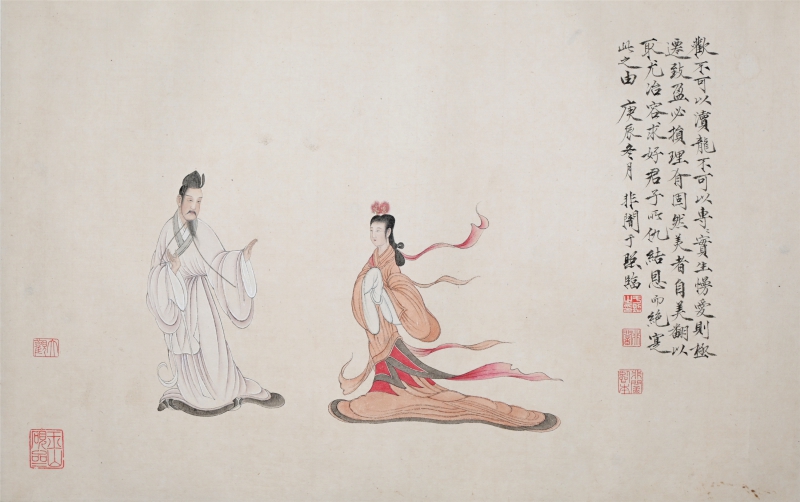 歡不可以瀆龍不可以專〻實生慢愛則極
遷致盈必損理有固然美者自美翻以
取尤冶容求好君子所仇結恩而絕寔
此之由 庚辰冬月 非闇于照臨